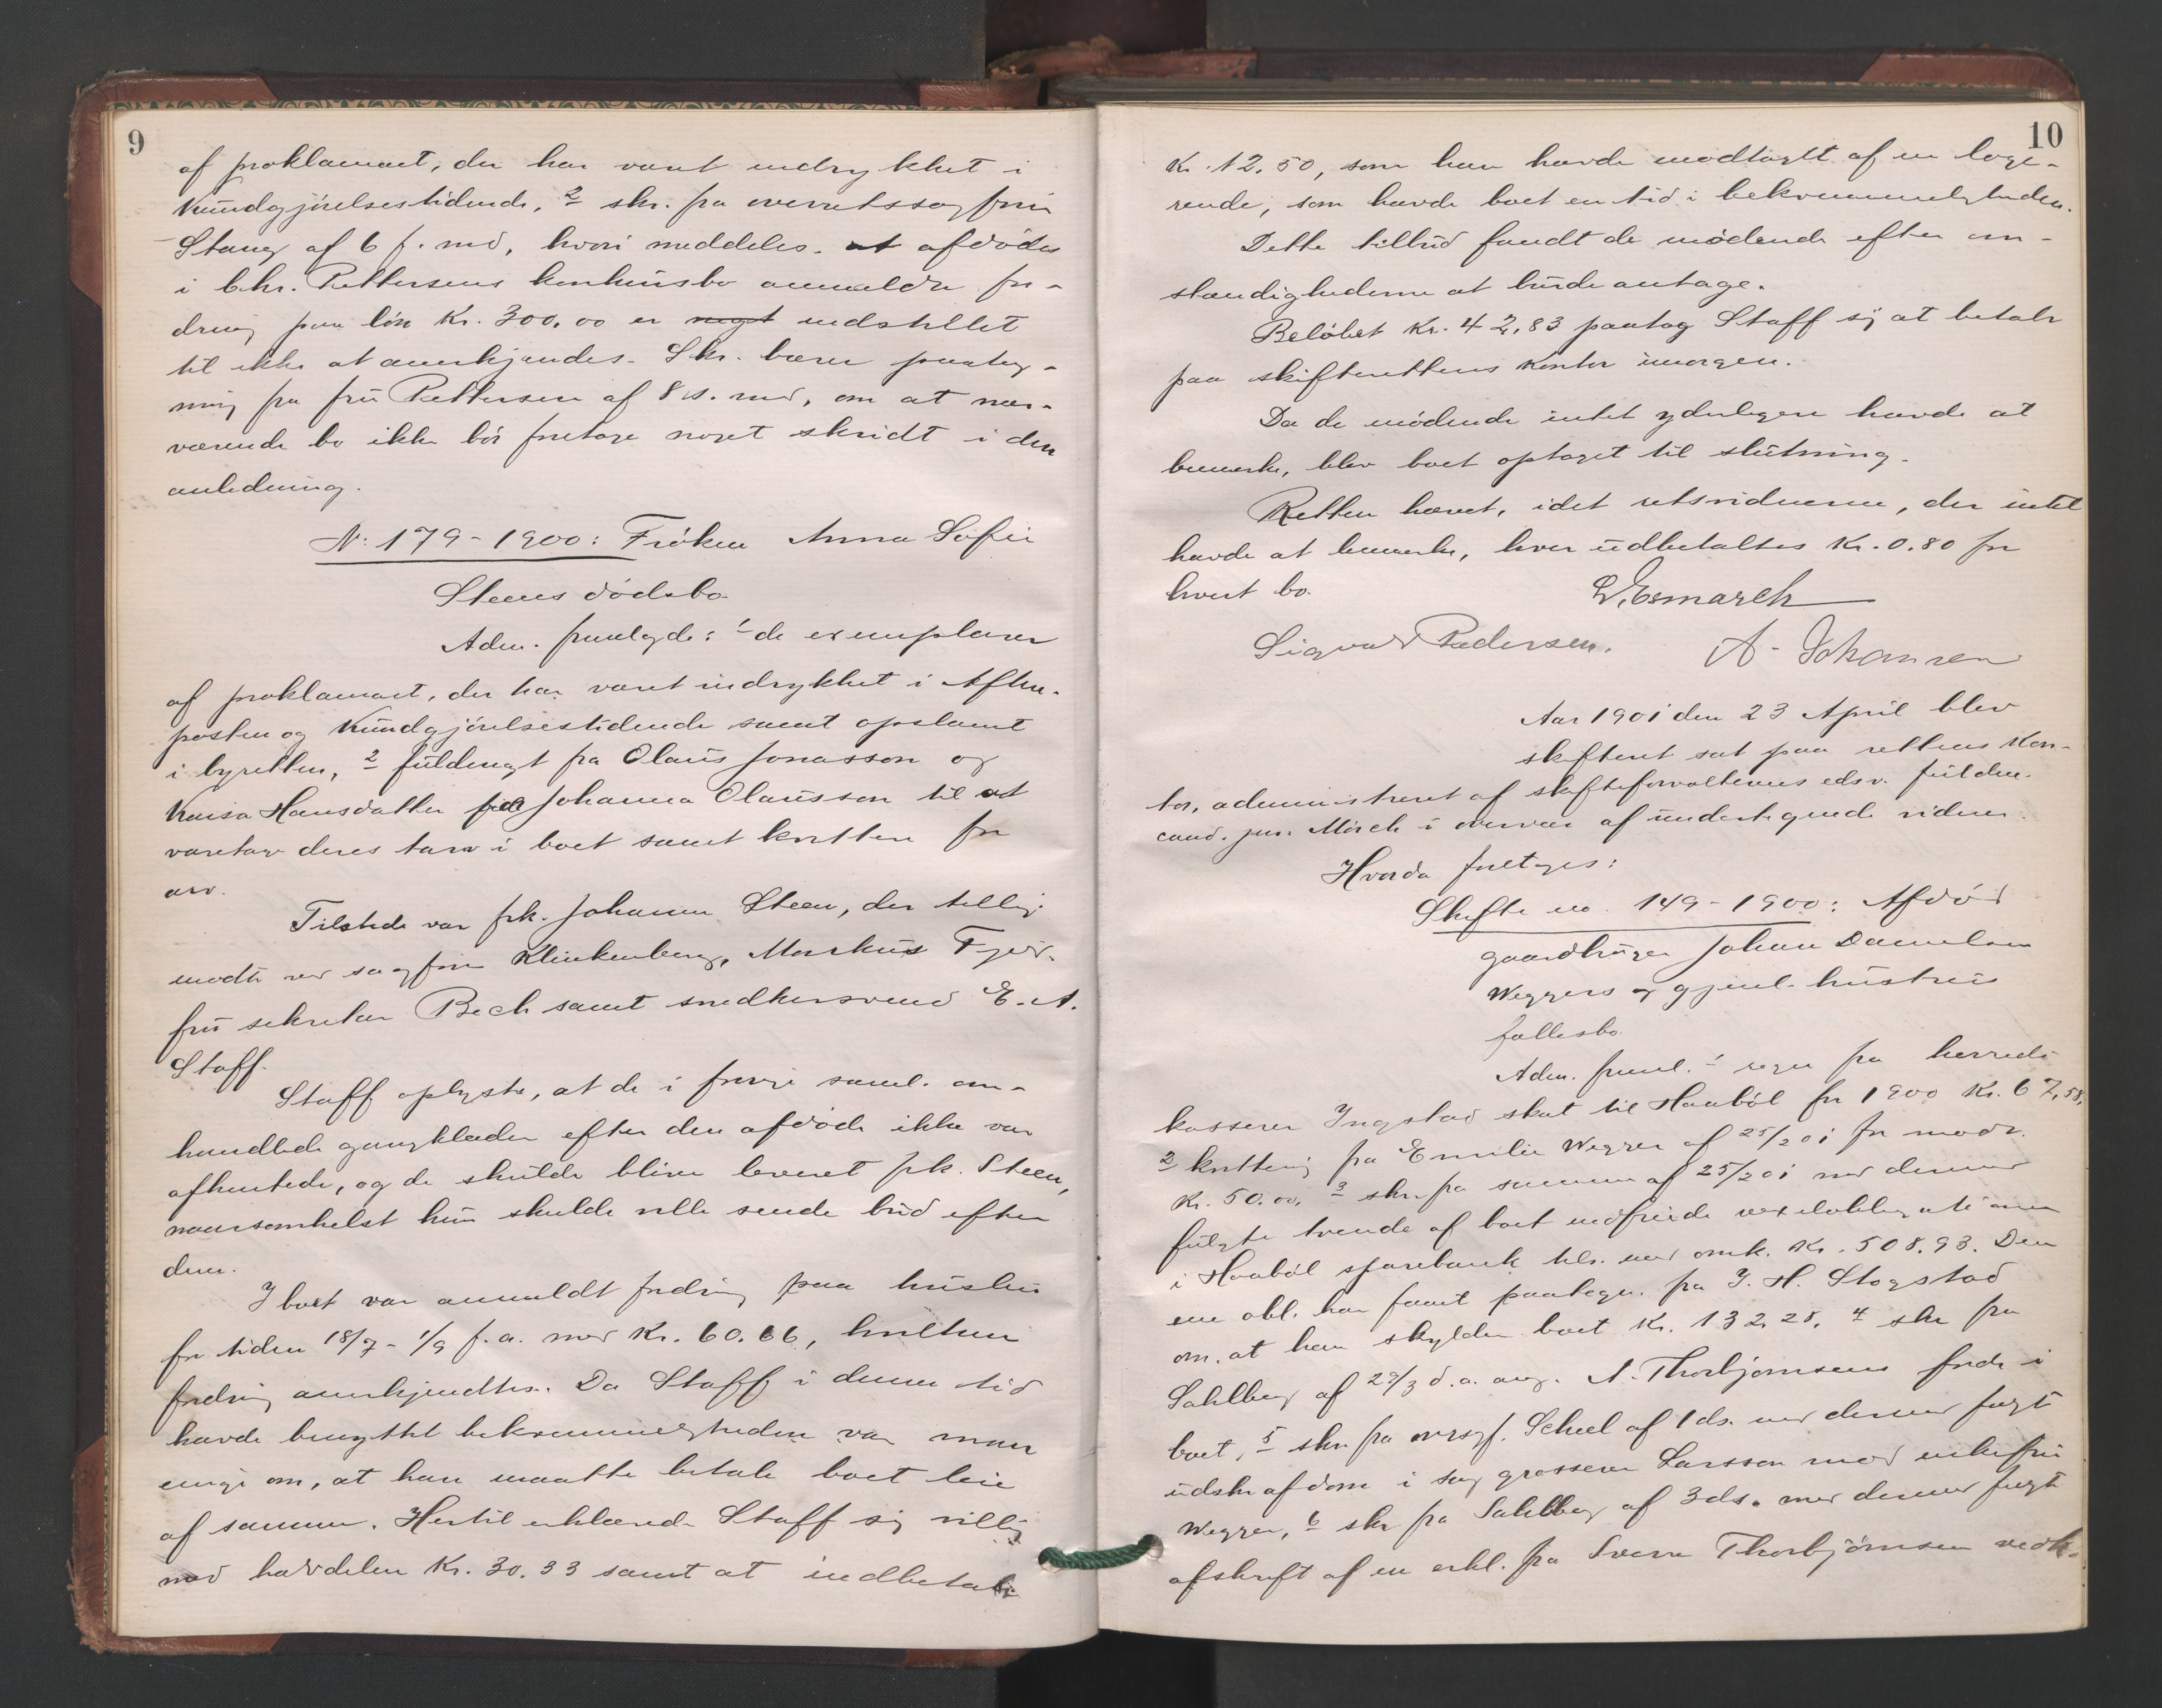 9
af proklamaet, der har været indrykket i
Kundgjørelsestidende, 2 skr. fra overretssagfører
Stang af 6 f. md, hvori meddeles at afdødes
i Chr. Pettersens konkursbo anmeldte for-
dring paa løn Kr. 300,00 er noget indstillet
til ikke at anerkjendes. Skr. bærer paateg-
ning fra fru Pettersen af 8 s. md, om at nær-
værende bo ikke bør foretage noget skridt i den
anledning.
N: 179-1900: Frøken Anna Sofie
Steens dødsbo
Adm. fremlagde: 1 de exemplarer
af proklamaet, der har været indrykket i Aften-
posten og Kundgjørelsestidende samt opslaaet
i byretten, 2 fuldmagt fra Olaus Jonasson og
Kaisa Hansdatter for Johanna Olausson til at
varetage deres tarv i boet samt kvittere for
arv.
Tilstede var frk. Johanne Steen, der tillige
mødte ved sagfører Klinkenberg, Markus
fru sekretær Bech samt snedkersvend E. A.
Staff.
Staff oplyste, at de i forrige saml. om-
handlede gangklæder efter den afdøde ikke var
afhentede, og de skulde blive leveret frk. Steen,
naarsomhelst hun skulde ville sende bud efter
dem.
I boet var anmeldt fordring paa husleie
for tiden 18/7 - 1/9 f. a. med Kr. 60.66, hvilken
fordring anerkjendtes. Da Staff i denne tid
havde benyttet bekvemmeligheden var man
enige om, at han maatte betale boet leie
af samme. Hertil erklærede Staff sig villig
med halvdelen Kr. 30.33 samt at indbetale
10
Kr. 12.50, som han havde modtaget af en loge-
rende, som havde boet en tid i bekvemmeligheden.
Dette tilbud fandt de mødende efter om-
stændighederne at burde antage.
Beløbet Kr. 42,83 paatog Staff sig at betale
paa skifterettens kontor imorgen.
Da de mødende intet yderligere havde at
bemerke, blev boet optaget til slutning.
Retten hævet, idet retsvidnerne, der intet
havde at bemerke, hver udbetaltes Kr. 0.80 for
hvert bo.
L. Esmarch
Sigvard Pedersen. A. Johansen
Aar 1901 den 23 April blev
skifteret sat paa rettens kon-
tor, administreret af skifteforvalterens edsv. fuldm.
cand. jur. Mørch i overvær af undertegnede vidner.
Hvorda foretoges:
Skifte no. 149-1900: Afdød
gaardbruger Johan Danielsen
Weggers og gjenl. hustrues
fællesbo
Adm. freml. 1 regn. fra herreds
kasserer Ingstad skat til Haabøl for 1900 Kr. 67,58,
2 kvittering fra Emilie Wegger af 25/2 01 for modt.
Kr. 50.00, 3 skr. fra samme af 25/2 01 med dermed
fulgte tvende af boet indfriede vexelobligationer
i Haabøl sparebank tils. med omk. Kr. 508.93. Den
ene obl. har faaet paategn. fra I. H. Stogstad
om, at han skylder boet Kr. 132,28, 4 skr fra
Sahlberg af 29/3 d. a. ang. A. Thorbjørnsens fordr i
boet, 5 skr. fra ovrsgf. Scheel af 1 ds. med dermed fugt
udskr af dom i sag grosserer Larsson mod enkefru
Wegger, 6 skr fra Sahlberg af 3 ds. med dermed fugt
afskrift af en erkl. fra Svern Thorbjørnsen vedk-